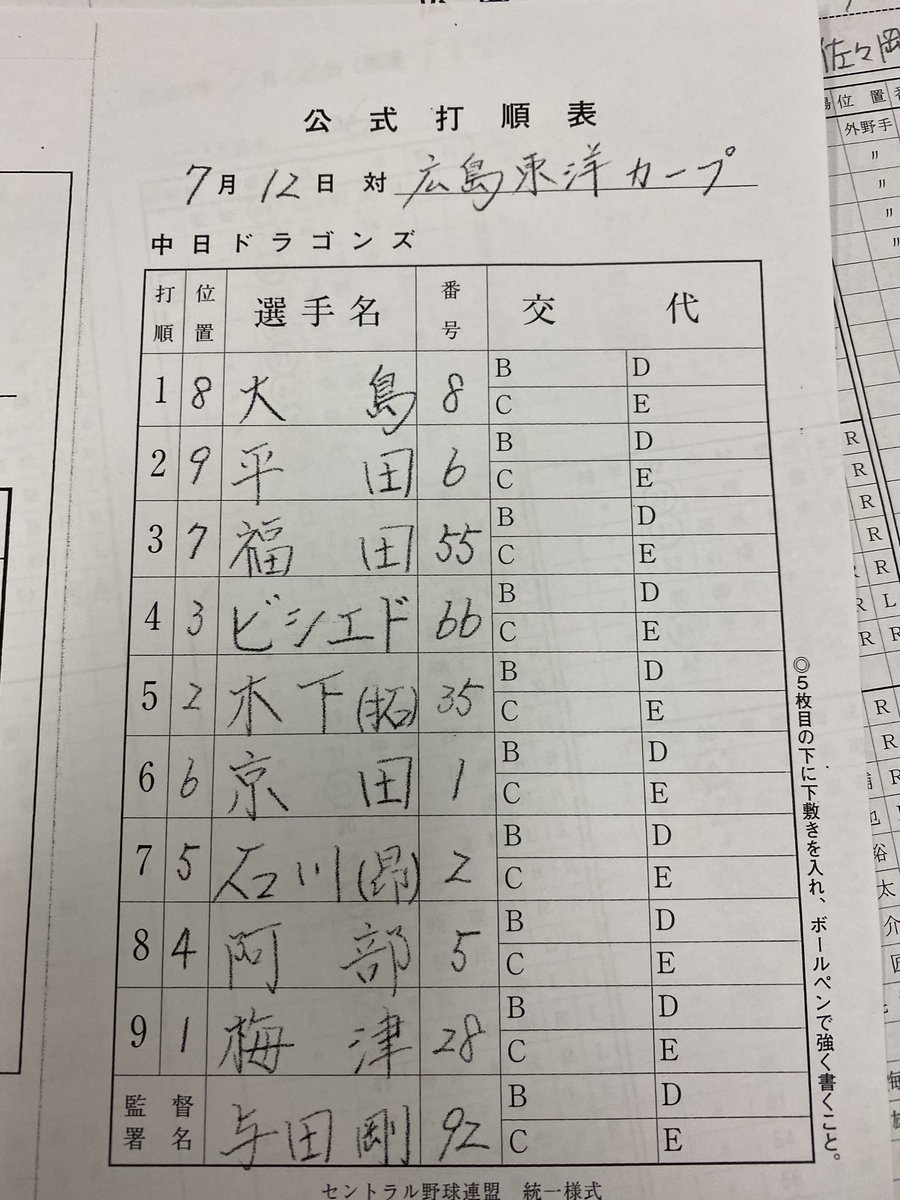 公式打順表
7月12日 対 広島東洋カープ
中日ドラゴンズ
打順 位置 選手名 番号 交代
1 8 大島 8 B D C E
2 9 平田 6 B D C E
3 7 福田 55 B D C E
4 3 ビシエド 66 B D C E
5 2 木下(拓) 35 B D C E
6 6 京田 1 B D C E
7 5 石川(昂) 2 B D C E
8 4 阿部 5 B D C E
9 1 梅津 28 B D C E
監督署名 与田剛 92 B D C E
セントラル野球連盟 統一様式
◎5枚目の下に下敷きを入れ、ボールペンで強く書くこと。
佐々岡
位置
外野手
〃
〃
〃
〃
R
R
R
R
R
R L
R R
R
R
R
也
裕
太
介